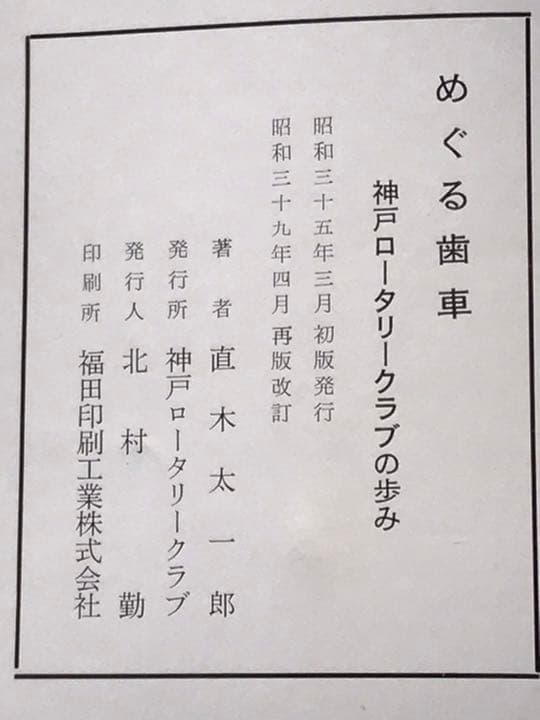 めぐる歯車
神戸ロータリークラブの歩み
昭和三十五年三月初版発行
昭和三十九年四月再版改訂
著者 直木太一郎
発行所 神戸ロータリークラブ
発行人 北村勤
印刷所 福田印刷工業株式会社